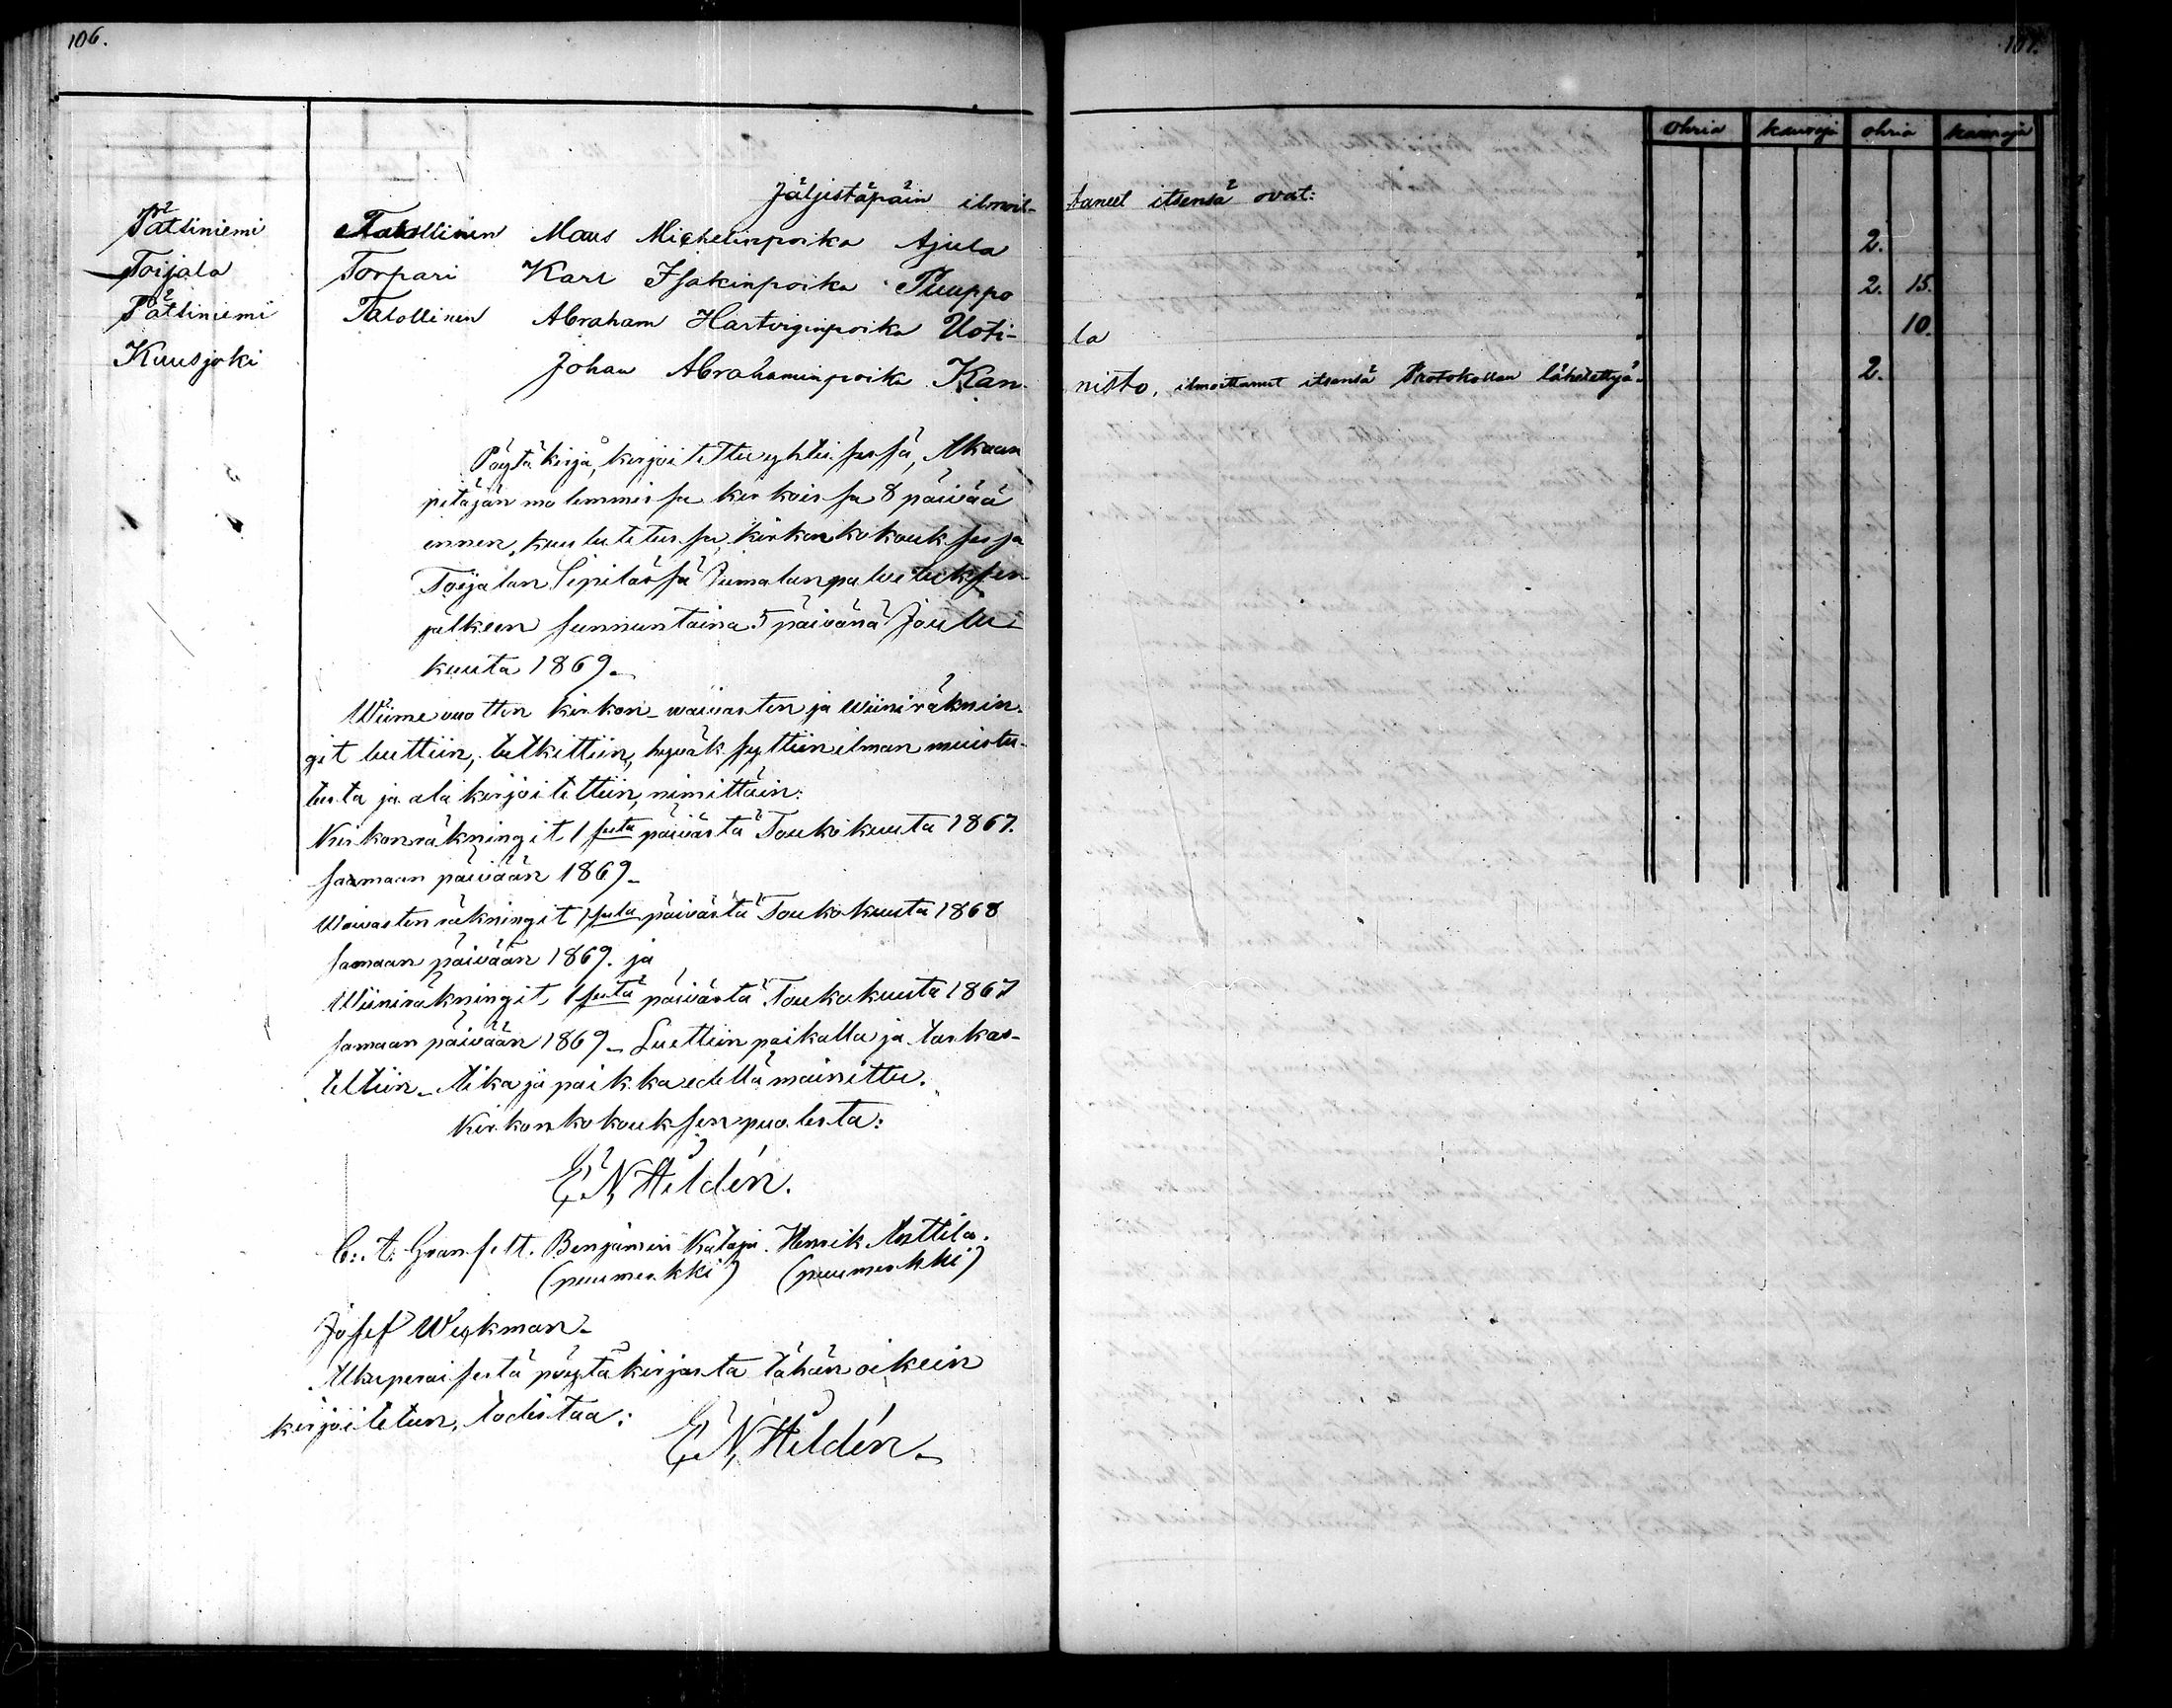 106.
107.
ohria kauroja ohria kauroja
Jäljestäpäin ilmoit- taneet itsensä ovat:
Pätsiniemi Talollinen Maus Michelinpoika Ajula " 2.
Toijala Torpari Karl Isakinpoika Puuppo " 2. 15.
Pätsiniemi Talollinen Abraham Hartviginpoika Uoti- la " 10.
Kuusjoki Johan Abrahaminpoika Kan- nisto, ilmoittanut itsensä Protokollan lähetettyä. 2.
Pöytäkirja, kirjoitettu yhteisessä, Akaan
pitäjän molemmissa kirkoissa 8 päivää
ennen, kuulutetussa, kirkonkokouksessa
Toijalan Sipilässä Jumalanpalveluksen
jälkeen sunnuntaina 5 päivänä Joulu-
kuuta 1869.
Wiimevuotten kirkon- waivasten ja Wiiniräknin-
git luettiin, tutkittiin, hyväksyttiin ilman muistu-
tusta ja alakirjoitettiin, nimittäin:
Kirkonräkningit 1 sestä päivästä Toukokuuta 1867.
samaan päivään 1869.
Waivasten räkningit 1 sestä päivästä Toukokuusta 1868
samaan päivään 1869. ja
Wiiniräkningit 1 sestä päivästä Toukokuusta 1867
samaan päivään 1869. Luettiin paikalla ja tarkas-
tettiin. Aika ja paikka edellä mainittu.
Kirkonkokouksen puolesta:
E. N. Hildén.
C: A: Granfelt. Benjamin Kataja. Henrik Anttila.
(puumerkki) (puumerkki)
Josef Wegkman.
Alkuperäisestä pöytäkirjasta tähän oikein
kirjoitetun, todistaa:
E. N. Hildén.